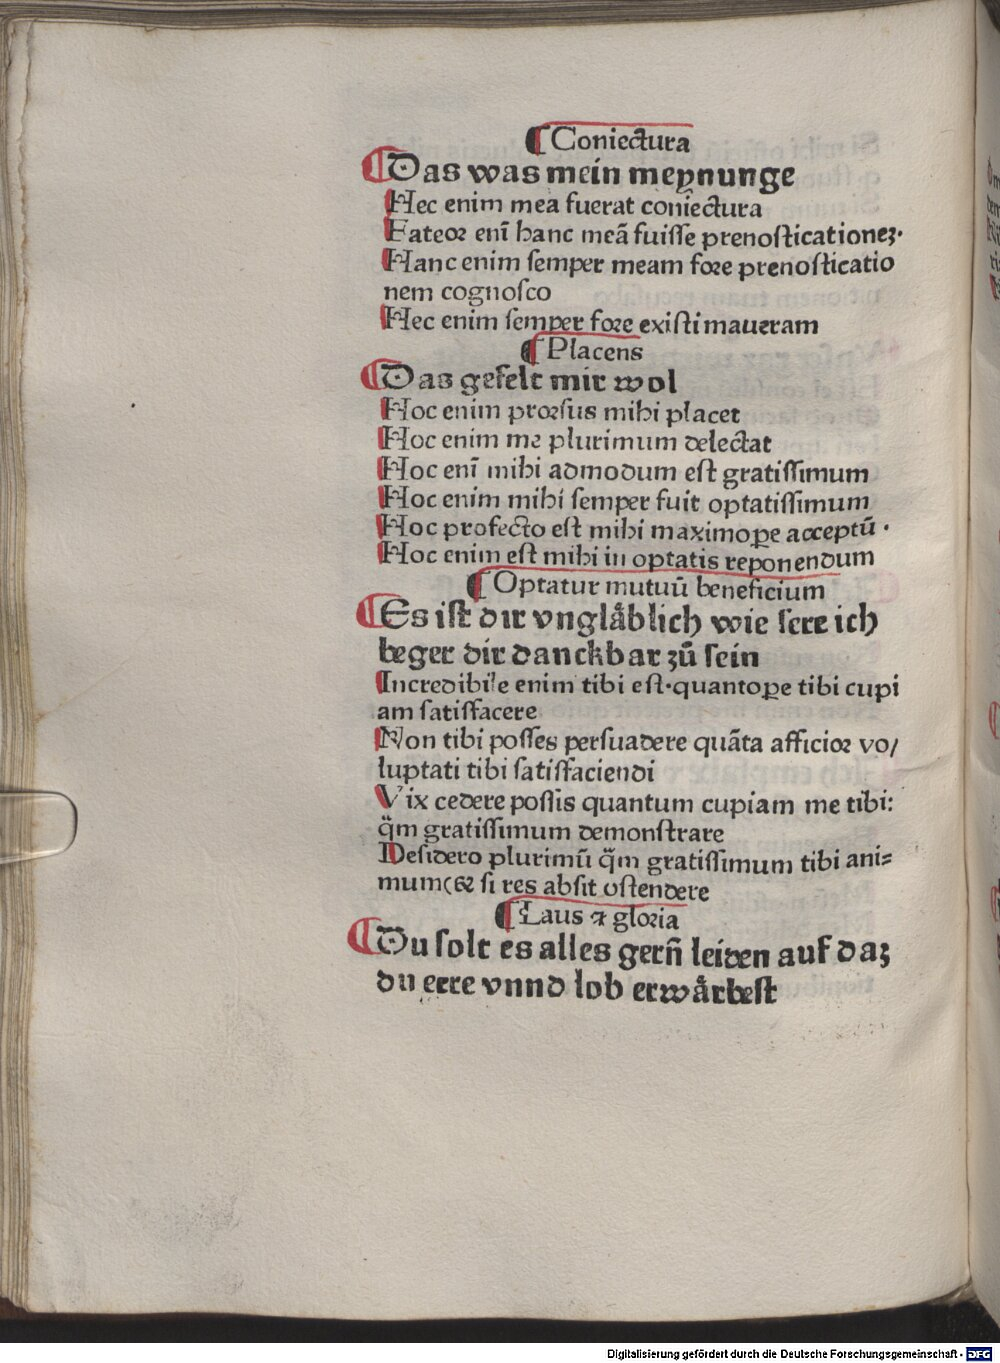 ¶Coniectura
¶Das was mein meynunge
Hec enim mea fuerat coniectura
Fateor enī hanc meā fuiſſe prenoſticationeꝫ·
Hanc enim ſemper meam fore prenoſticatio
nem cognoſco
Hec enim ſemper fore exiſtimaueram
¶Placens
¶Das gefelt mir wol
Hoc enim prorſus mihi placet
Hoc enim me plurimum delectat
Hoc enī mihi admodum eſt gratiſſimum
Hoc enim mihi ſemper fuit optatiſſimum
Hoc profecto eſt mihi maximoꝑe acceptū ·
Hoc enim eſt mihi in optatis reponendum
¶Optatur mutuū beneficium
¶Es iſt dir vnglaͤblich wie ſere ich
beger dir danckbar zuͤ ſein
Incredibile enim tibi eſt·quantoꝑe tibi cupi
am ſatiſfacere
Non tibi poſſes perſuadere quāta afficior vo/
luptati tibi ſatiſfaciendi
Vix cedere poſſis quantum cupiam me tibi:
q̈m gratiſſimum demonſtrare
Deſidero plurimū q̈m gratiſſimum tibi ani=
mum(& ſi res abſit oſtendere
¶Laus ⁊ gloria
¶Du ſolt es alles gern̄ leiden auf daz
du eere vnnd lob erwaͤrbeſt
Digitalisierung gefördert durch die Deutsche Forschungsgemeinschaft - DFG